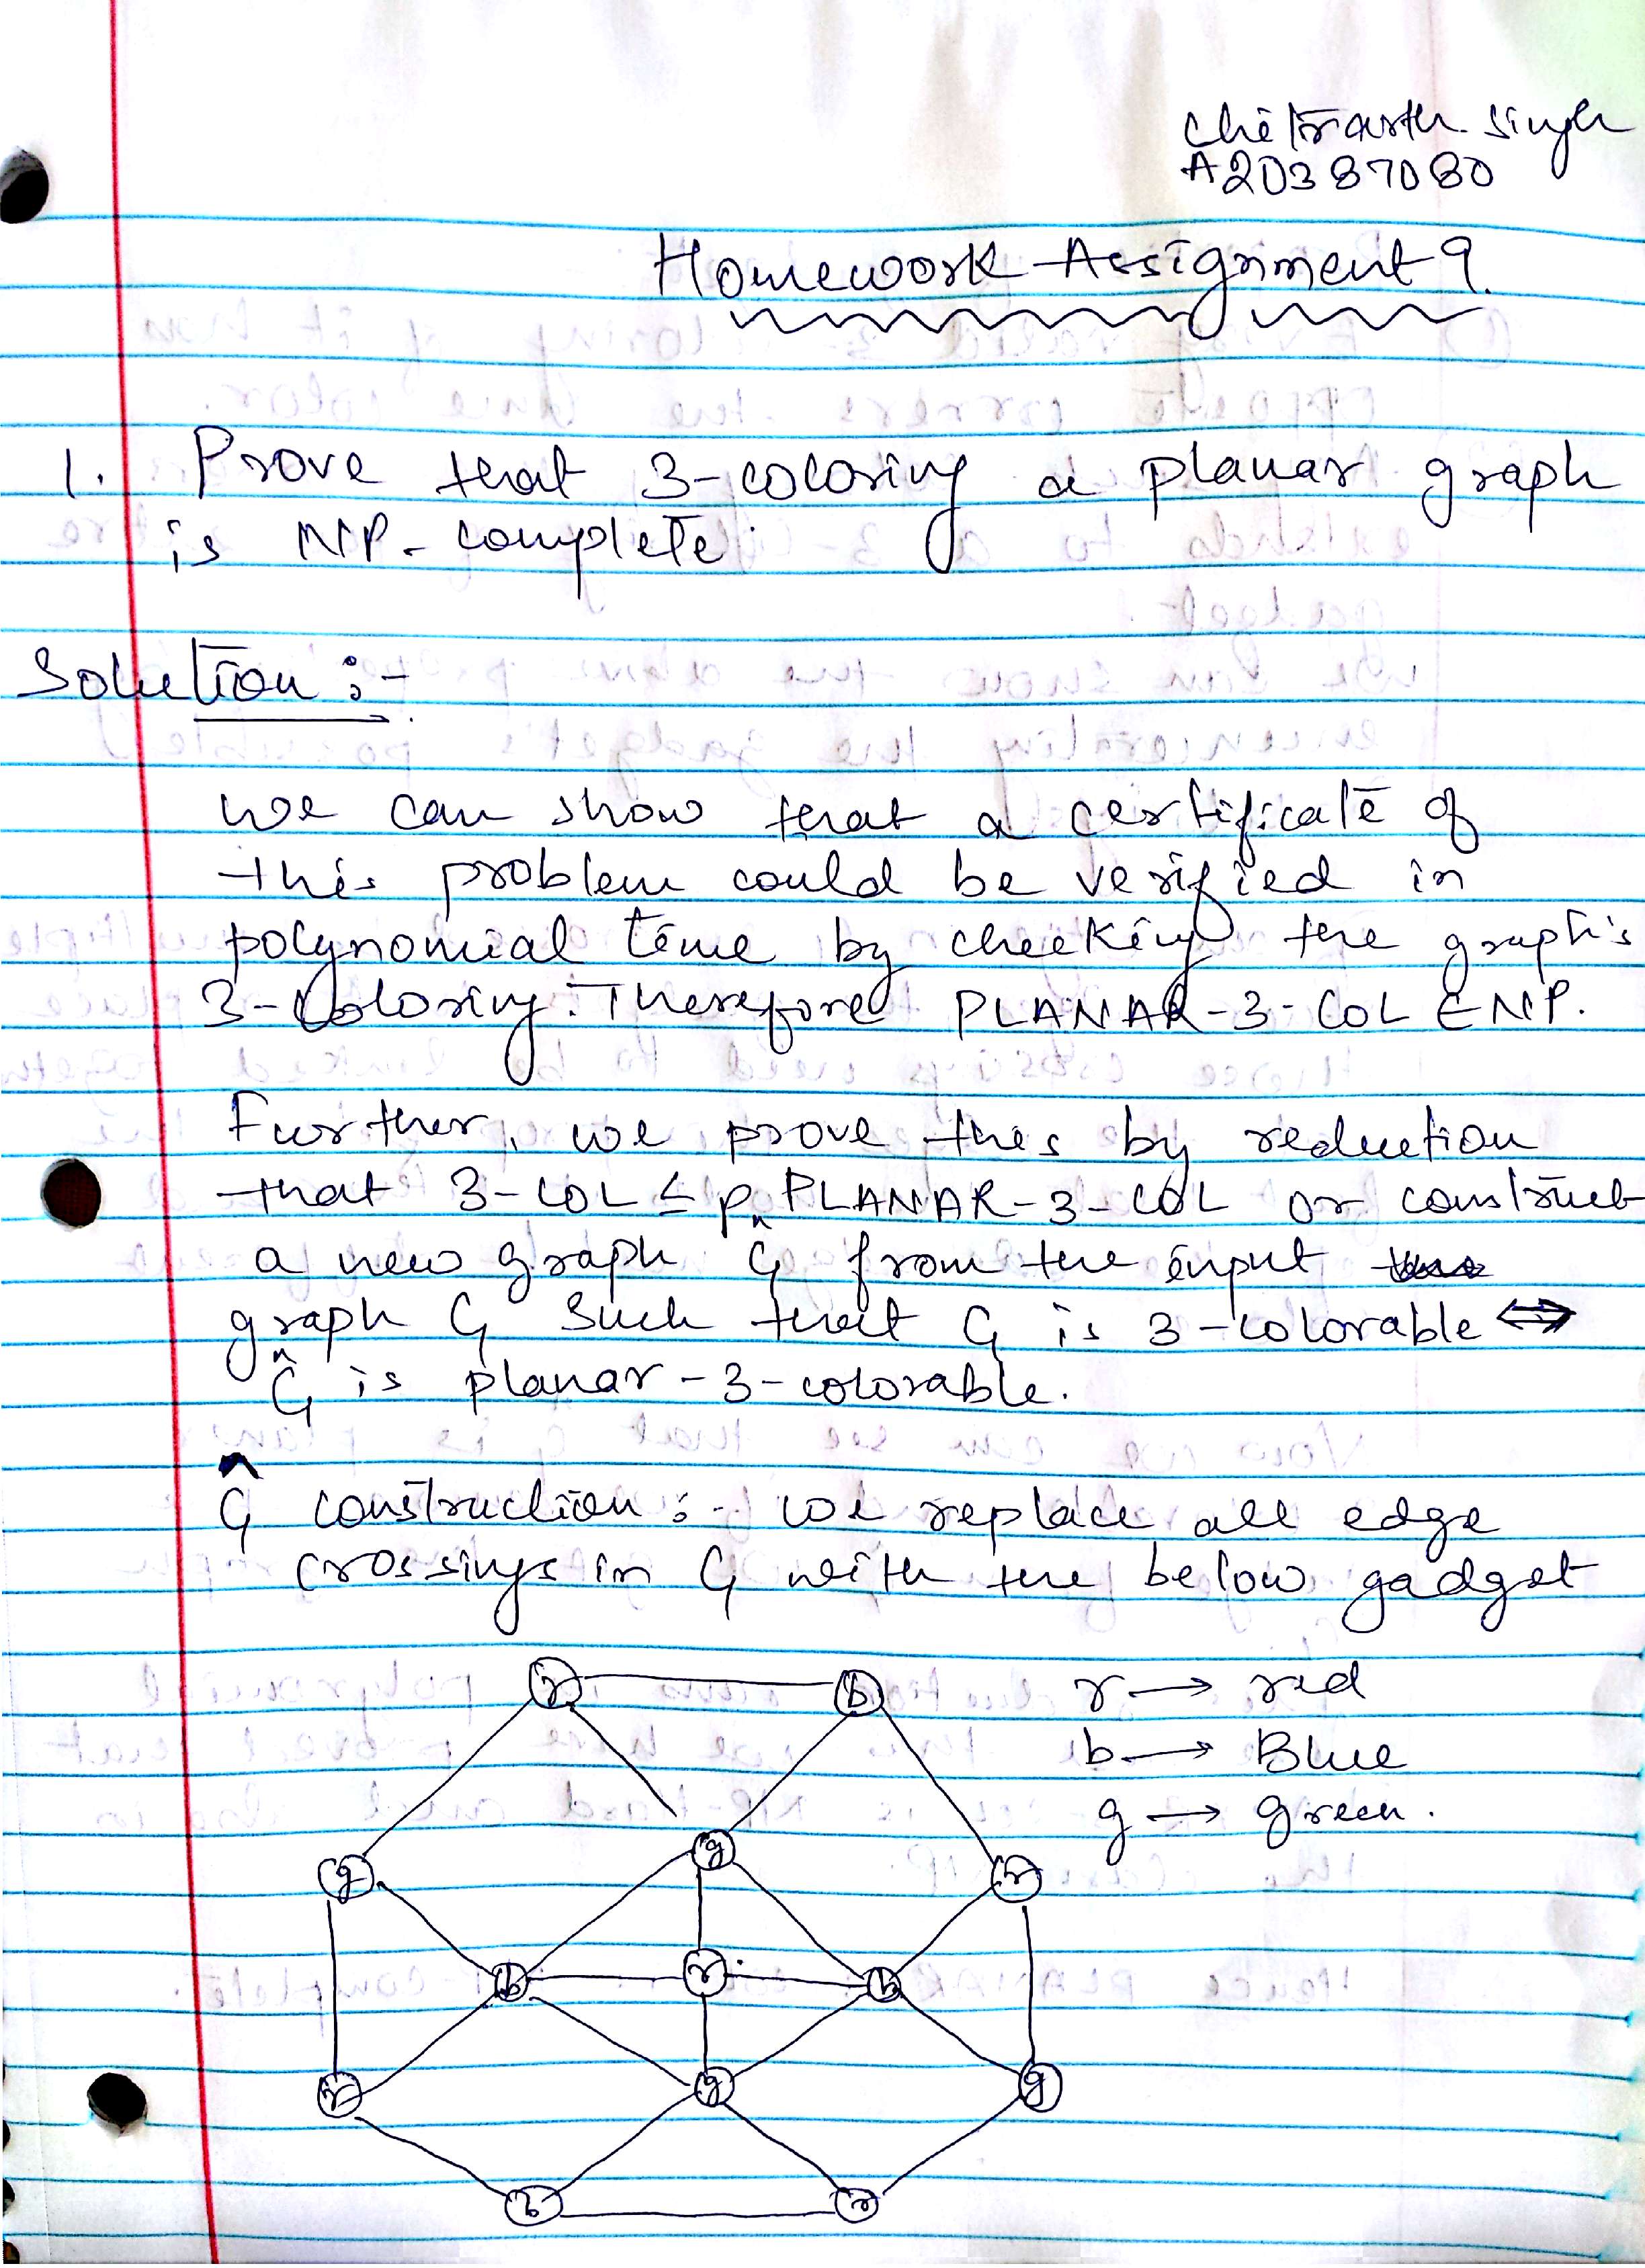 Chitrarth Singh
A20387080
Homework Assignment 9.
1. Prove that 3-coloring a planar graph
is NP-complete.
Solution :-
we can show that a certificate of
this problem could be verified in
polynomial time by checking the graph's
3-Coloring. Therefore PLANAR-3-COL ∈ NP.
Further, we prove this by reduction
that 3-COL ≤p PLANAR-3-COL or construct
a new graph Ĝ from the input
graph G such that G is 3-colorable ⟺
Ĝ is planar-3-colorable.
Ĝ construction :- we replace all edge
crossings in G with the below gadget
r b r → red
b → Blue
g → green.
g g r
b r b
r g g
b r